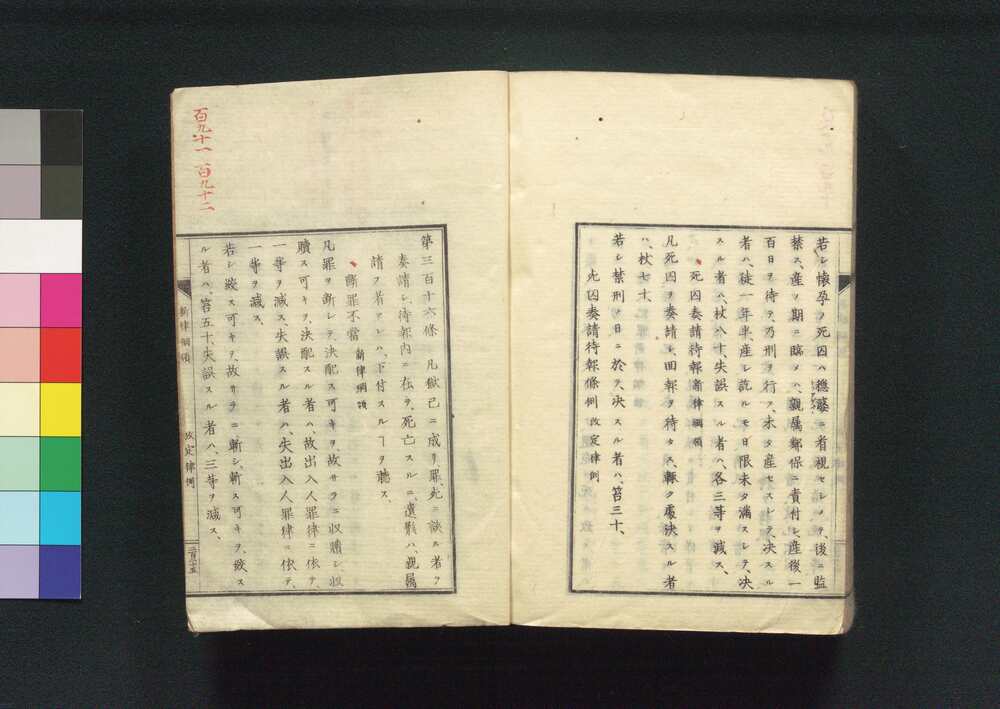 若シ懐孕ノ死囚ハ穏婆ニ者視セシメテ、後ニ監
禁ス、産ノ期ニ臨メハ、親属鄰保ニ責付シ産後一
百日ヲ待テ、乃刑ヲ行フ、未タ産セスシテ、決スル
者ハ、徒一年半、産シ訖ルモ日限未タ満スシテ、決
スル者ハ、杖八十、失誤スル者ハ、各三等ヲ減ス、
死囚奏請待報 新律綱領
凡死囚ヲ奏請シ、回報ヲ待タス、輙ク處決スル者
ハ、杖七十、
若シ禁刑ノ日ニ於テ、決スル者ハ、笞三十、
死囚奏請待報條例 改定律例
第三百十六條 凡獄已ニ成リ罪死ニ該ス者ヲ
奏請シ、待報内ニ在テ、死亡スルニ、遺骸ハ、親属
請フ者アレハ、下付スルヿヲ聴ス、
断罪不當 新律綱領
凡罪ヲ断シテ、決配ス可キヲ、故サラニ収贖シ、収
贖ス可キヲ、決配スル者ハ、故出入人罪律ニ依テ、
一等ヲ減ス、失誤スル者ハ、失出入人罪律ニ依テ、
一等ヲ減ス、
若シ絞ス可キヲ、故サラニ斬シ、斬ス可キヲ、絞ス
ル者ハ、笞五十、失誤スル者ハ、三等ヲ減ス、
新律綱領 改定律例
百九十一 百九十二